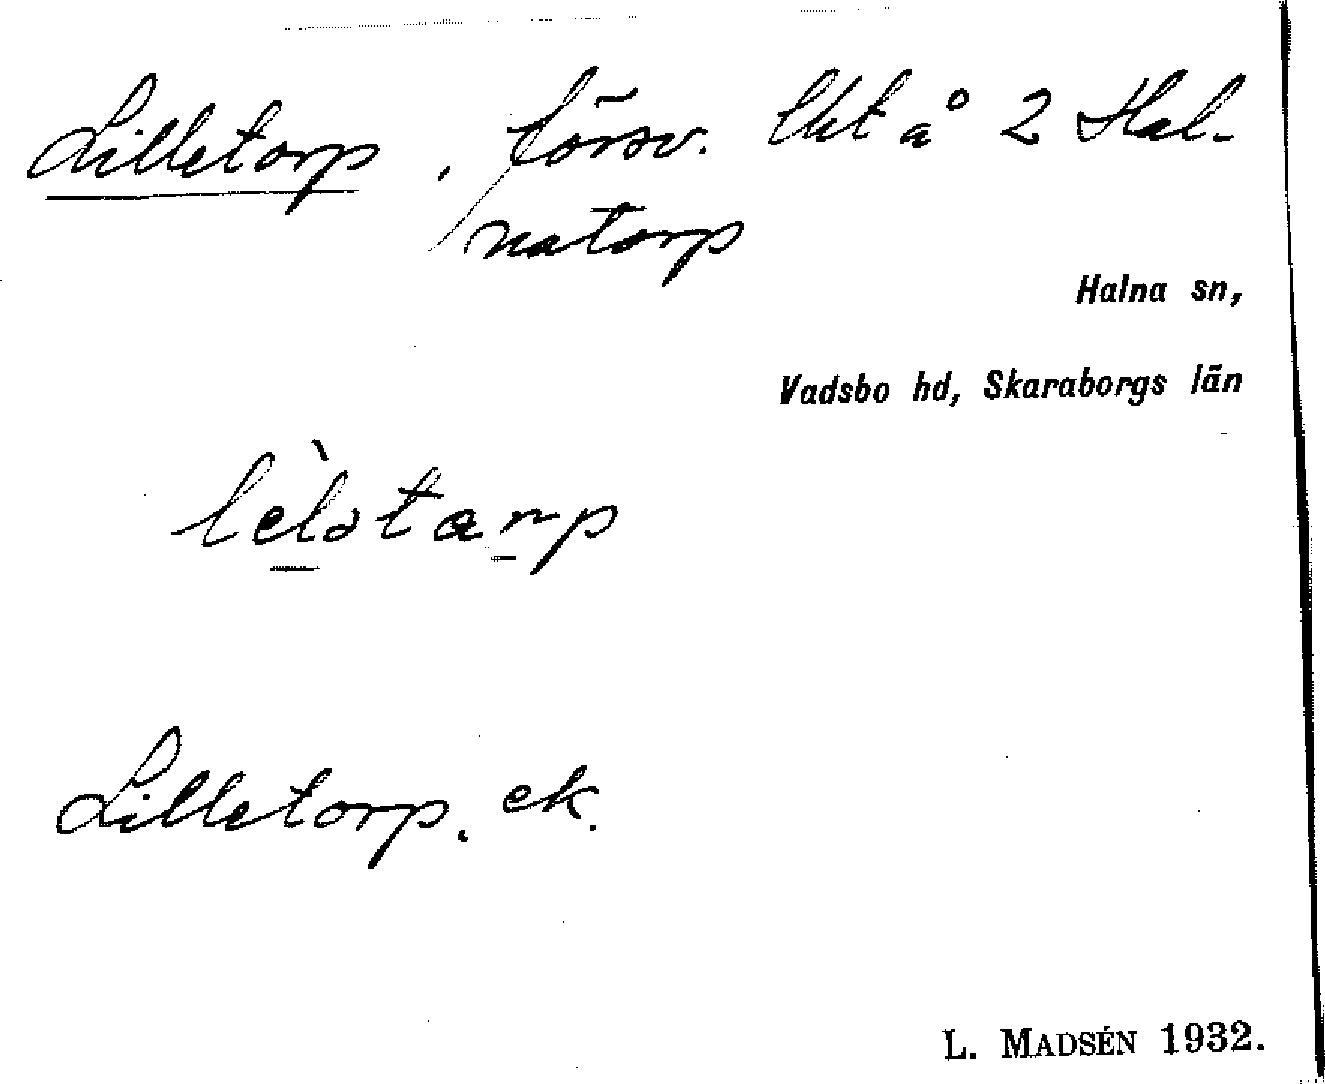 Lilletorp, försv. lht å 2 Hal-
natorp
Halna sn,
Vadsbo hd, Skaraborgs län
Lilletorp. ek.
L. MADSÉN 1932.